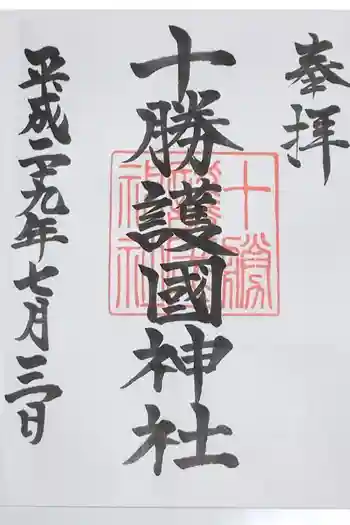 奉拝
十勝護國神社
十勝護國神社
平成二十九年七月三日